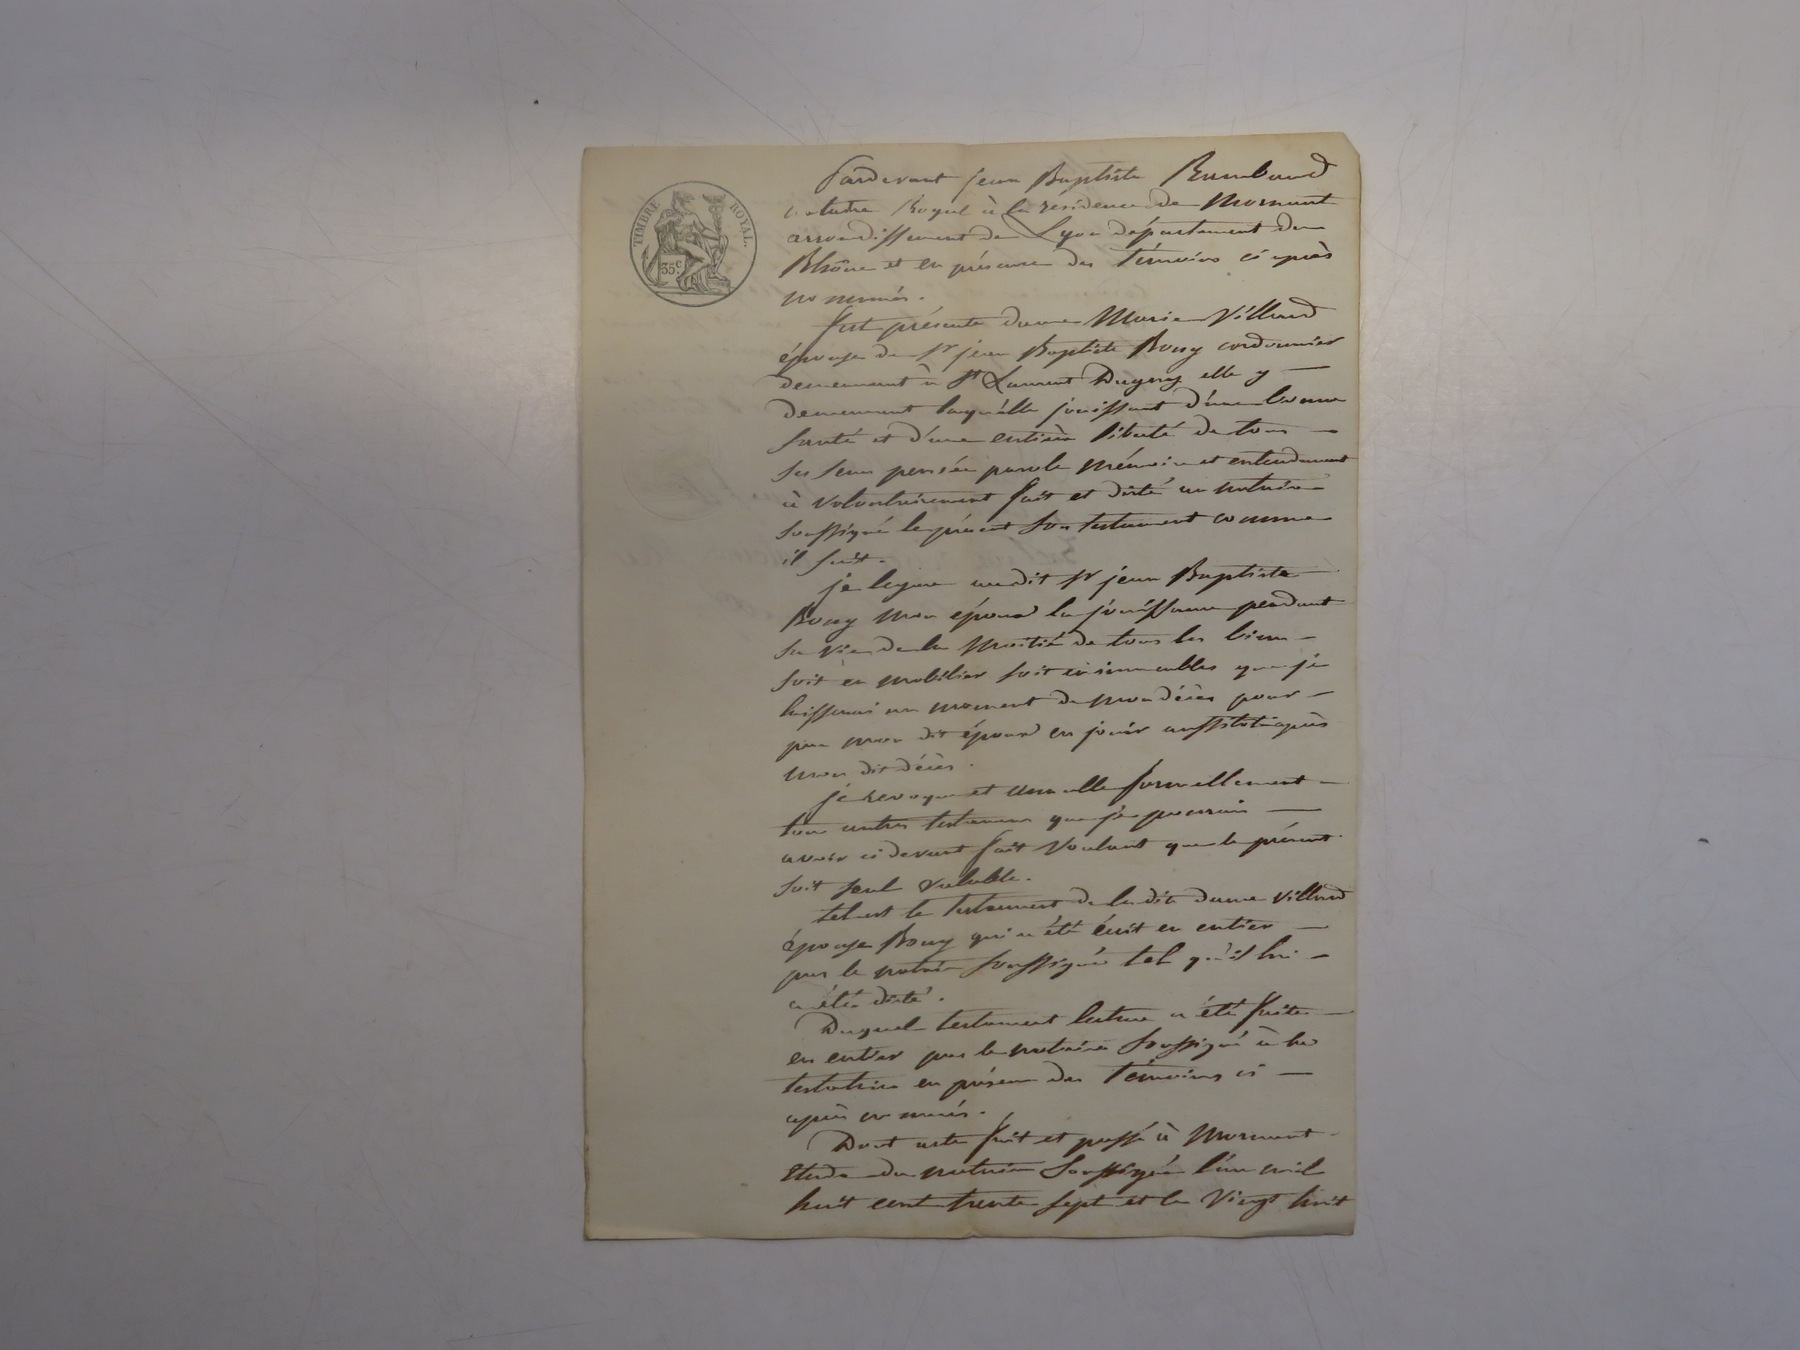 TIMBRE ROYAL.
35 c.
Pardevant jean Baptiste Rambaud
notaire Royal à la résidence de Mornant
arrondissement de Lyon département du
Rhône et en présence des témoins ci après
nommés.
fut présente dame Marie Villard
épouse de Sr jean Baptiste Bony cordonnier
demeurant à St Laurent Dagny elle y
demeurant laquelle jouissant d'une bonne
santé et d'une entière liberté de tous
ses sens pensée parole mémoire et entendement
à volontairement fait et dicté au notaire
soussigné le présent son testament comme
il suit.
je legue audit Sr jean Baptiste
Bony mon époux la jouissance pendant
sa vie de la moitié de tous les biens
soit en mobilier soit en immeubles que je
laisserai au moment de mon décès pour
par mon dit époux en jouir aussitôt après
mon dit décès.
je revoque et annulle formellement
tous autres testamens que je pourrais
avoir ci devant fait voulant que le présent
soit seul valable.
tel est le testament de ladite dame Villard
épouse Bony qui a été écrit en entier
par le notaire soussigné tel qu'il lui
a été dicté.
Duquel testament lecture a été faite
en entier par le notaire soussigné à la
testatrice en présence des témoins ci
après nommés.
Dont acte fait et passé à Mornant
étude du notaire soussigné l'an mil
huit cent trente sept et le vingt huit